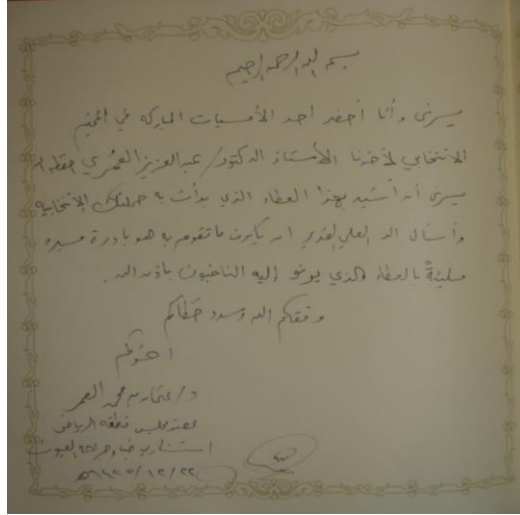 بسم الله الرحمن الرحيم
يسرني وأنا أحضر أحد الأمسيات المباركة في المخيم
الانتخابي لأخونا الأستاذ الدكتور/ عبدالعزيز العُمري حفظه الله
يسرني أن أشيد بهذا العطاء الذي بدأت به حملتك الانتخابية
وأسأل الله العلي القدير ان يكون ما تقوم به هو بادرة مسيره
مليئةً بالعطاء والذي يرنو إليه الناخبون باذن الله.
وفقكم الله وسدد خطاكم
اخوكم
د/ عثمان بن محمد العمر
عضو مجلس منطقة الرياض
استشاري طب وجراحة العيون